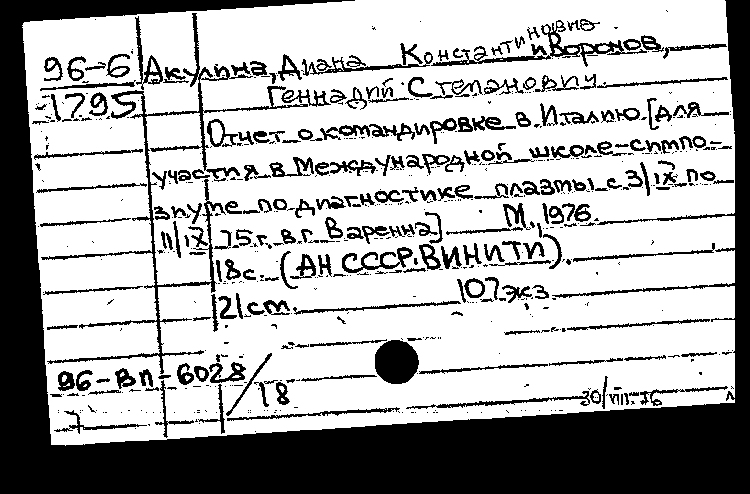 96-6 Акулина, Диана Константиновна и Воронов,
1795 Геннадий Степанович.
Отчет о командировке в Италию. [для
участия в Международной школе-симпо-
зиуме по диагностике плазмы с 3/IX по
11/IX 75 г. в г. Варенна]. М., 1976.
18 с. (АН СССР. ВИНИТИ).
21 см. 107 экз.
96-ВП-6028/18
30/VIII-76